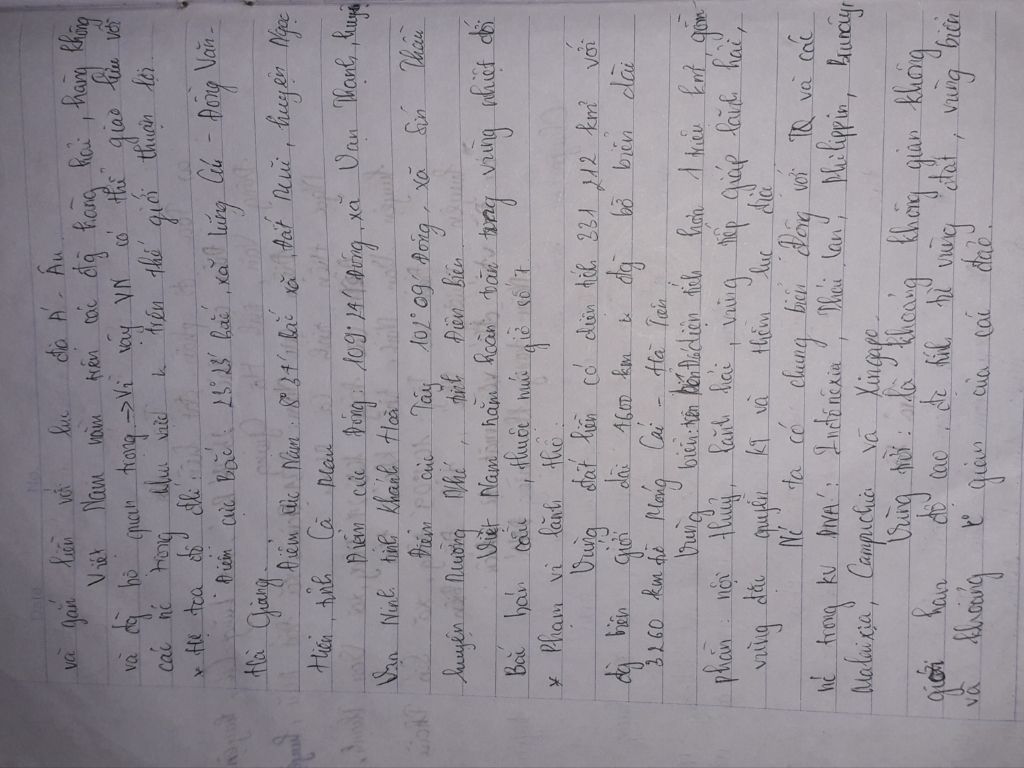 và gắn liền với lục địa Á - Âu.
Việt Nam nằm trên các đg hàng hải, hàng không
và đg bộ quan trọng -> Vì vậy VN có thể giao lưu với
các nc trong khu vực k trên thế giới thuận lợi.
* Hệ toạ độ địa lí:
Điểm cực Bắc 23°23' Bắc, xã Lũng Cú - Đồng Văn -
Hà Giang.
Điểm cực Nam: 8°34' Bắc xã Đất Mũi, huyện Ngọc
Hiển, tỉnh Cà Mau
Điểm cực Đông 109°24' Đông, xã Vạn Thạnh, huyện
Vạn Ninh tỉnh Khánh Hoà
Điểm cực Tây 102°09' Đông, xã Sín Thầu
huyện Mường Nhé, tỉnh Điện Biên
Việt Nam nằm hoàn toàn trong vùng nhiệt đới
Bắc bán cầu, thuộc múi giờ số 7
* Phạm vi lãnh thổ:
Vùng đất liền có diện tích 331 212 km² với
đg biên giới dài 4600 km k đg bờ biển dài
3260 km từ Móng Cái - Hà Tiên
Vùng biển: diện tích hơn 1 triệu km², gồm
phần: nội thuỷ, lãnh hải, vùng tiếp giáp lãnh hải,
vùng đặc quyền kt và thềm lục địa
Nc ta có chung biển Đông với TQ và các
nc trong kv ĐNA: Inđônêxia, Thái Lan, Philippin, Brunây,
Malaixia, Campuchia và Xingapo.
Vùng trời: là khoảng không gian không
giới hạn độ cao, đc tính từ vùng đất, vùng biển
và khoảng k gian của các đảo.